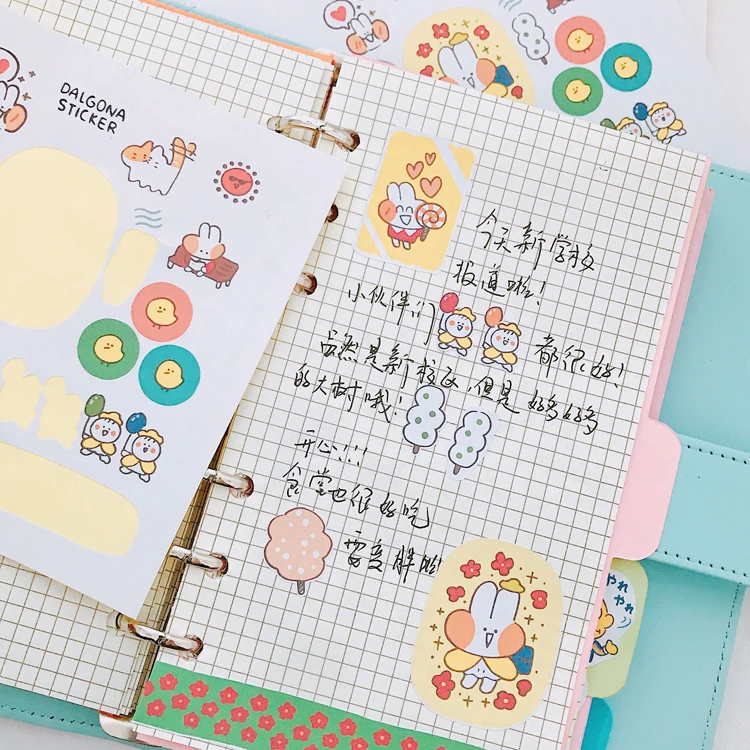 DALGONA
STICKER
今天新学校
报道啦!
小伙伴们 都很好!
虽然是新校区,但是好多好多
的大树哦!
开心!!!
食堂也很好吃
要变胖啦!
やれ
やれ